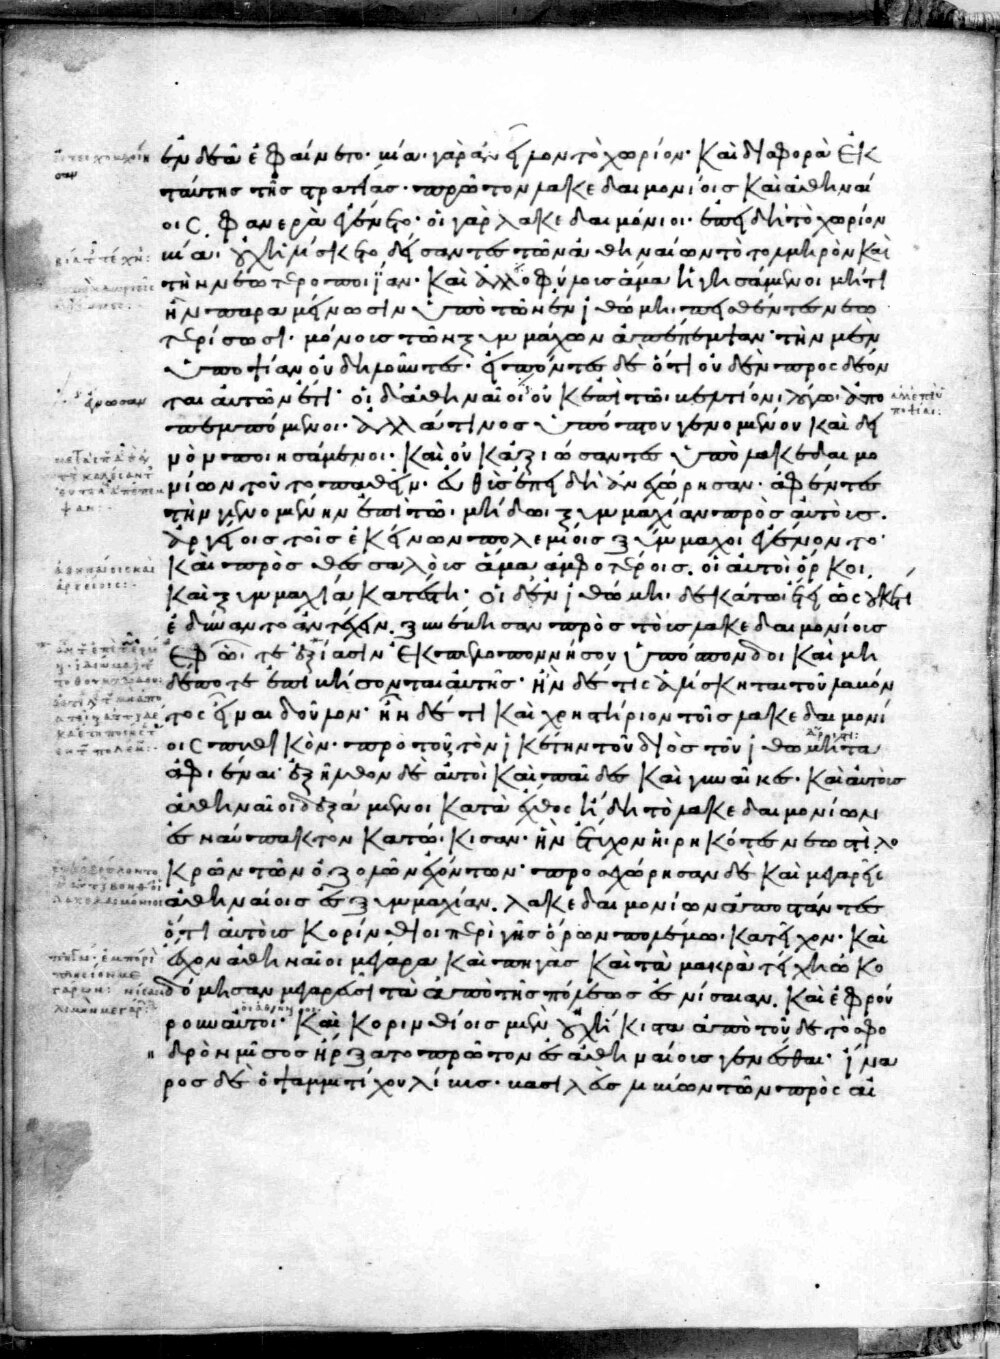 ἐνδεᾶ ἐφαίνετο· βίᾳ· γὰρ ἂν εἷλον τὸ χωρίον· καὶ διαφορὰ ἐκ
ταύτης τῆς στρατιᾶς· πρῶτον λακεδαιμονίοις καὶ ἀθηναί
οις φανερὰ ἐγένετο· οἱ γὰρ λακεδαιμόνιοι· ἐπειδὴ τὸ χωρίον
βίᾳ· οὐχ ἡλίσκετο δείσαντες τῶν ἀθηναίων τὸ τολμηρὸν καὶ
τὴν νεωτεροποιΐαν· καὶ ἀλλοφύλους ἅμα ἡγησάμενοι μή τι
ἢν παραμείνωσιν ὑπὸ τῶν ἐν ἰθώμῃ· πεισθέντες νεω
τερίσωσι· μόνους τῶν ξυμμάχων ἀπέπεμψαν· τὴν μὲν
ὑποψίαν οὐ δηλοῦντες· εἰπόντες δὲ ὅτι οὐδὲν προσδέον
ται αὐτῶν ἔτι· οἱ δ' ἀθηναῖοι οὐκ ἐπὶ τῷ βελτίονι λόγῳ· ἀπο
πεμπόμενοι· ἀλλά τινος ὑπόπτου γενομένου καὶ δει
νὸν ποιησάμενοι· καὶ οὐκ ἀξιώσαντες ὑπὸ λακεδαιμο
νίων τοῦτο παθεῖν· εὐθὺς ἐπειδὴ ἀνεχώρησαν· ἀφέντες
τὴν γενομένην ἐπὶ τῷ· μήδῳ· ξυμμαχίαν πρὸς αὐτοὺς.
ἀργείοις τοῖς ἐκείνων πολεμίοις ξύμμαχοι ἐγένοντο·
καὶ πρὸς θεσσαλοὺς ἅμα ἀμφοτέροις. οἱ αὐτοὶ ὅρκοι
καὶ ξυμμαχία κατέστη· οἱ δ' ἐν ἰθώμῃ· δεκάτῳ· ἔτει ὡς οὐκέτι
ἐδύναντο ἀντέχειν. ξυνέβησαν πρὸς τοὺς λακεδαιμονίους
ἐφ' ᾧ· τε ἐξίασιν ἐκ πελοποννήσου ὑπόσπονδοι καὶ μη
δέποτε ἐπιβήσονται αὐτῆς· ἢν δέ τις ἁλίσκηται τοῦ λαβόν
τος εἶναι δοῦλον· ἦν δέ τι καὶ χρηστήριον τοῖς λακεδαιμονί
οις πυθικὸν· πρὸ τοῦ, τὸν ἱκέτην τοῦ διὸς τοῦ ἰθωμήτα
ἀφιέναι· ἐξῆλθον δὲ αὐτοὶ καὶ παῖδες καὶ γυναῖκες· καὶ αὐτοὺς
ἀθηναῖοι δεξάμενοι κατὰ ἔχθος ἤδη τὸ λακεδαιμονίων
ἐς ναύπακτον κατῴκισαν· ἣν ἔτυχον ᾑρηκότες νεωστὶ λο
κρῶν τῶν ὀζολῶν ἐχόντων· προσεχώρησαν δὲ καὶ μεγαρῆς
ἀθηναίοις ἐς ξυμμαχίαν. λακεδαιμονίων ἀποστάντες
ὅτι αὐτοὺς κορίνθιοι περὶ γῆς ὅρων πολέμῳ· κατεῖχον· καὶ
ἔσχον ἀθηναῖοι μέγαρα καὶ πηγὰς καὶ τὰ μακρὰ τείχη ᾠκο
δόμησαν μεγαρεῦσι τὰ ἀπὸ τῆς πόλεως ἐς νίσαιαν. καὶ ἐφρού
ρουν αὐτοί· καὶ κορινθίοις μὲν οὐχ ἥκιστα ἀπὸ τοῦδε τὸ σφο
δρὸν μῖσος ἤρξατο πρῶτον ἐς ἀθηναίους γενέσθαι· ἰνά
ρος δὲ ὁ ψαμμιτίχου λίβυς· βασιλεὺς λιβύων τῶν πρὸς αἰ